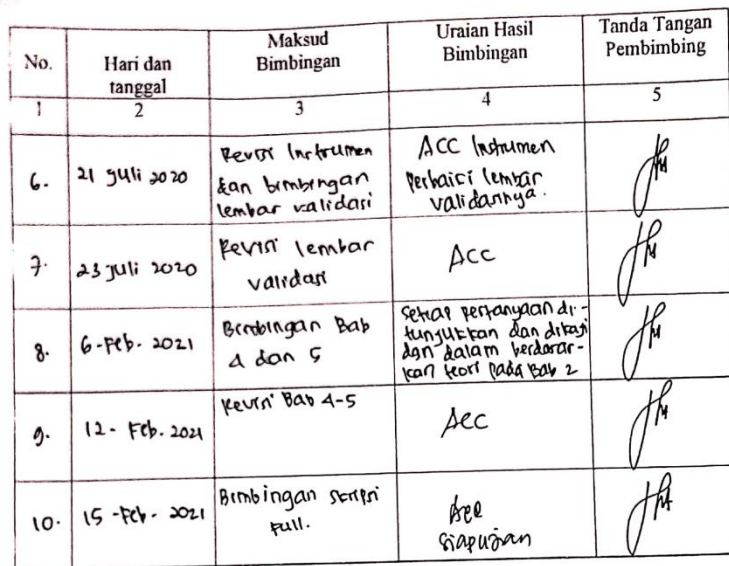 No.
Hari dan
tanggal
Maksud
Bimbingan
Uraian Hasil
Bimbingan
Tanda Tangan
Pembimbing
1
2
3
4
5
6.
21 Juli 2020
Revisi Instrumen
dan bimbingan
lembar validasi
ACC Instrumen
Perbaiki lembar
validasinya.
7.
23 Juli 2020
Revisi lembar
validasi
ACC
8.
6-Feb-2021
Bimbingan Bab
4 dan 5
Setiap pertanyaan di-
tunjukkan dan dikaji
dgn dalam berdasar-
kan teori pada Bab 2
9.
12-Feb.2021
Revisi Bab 4-5
Acc
10.
15-Feb-2021
Bimbingan skripsi
Full.
Acc
siap ujian